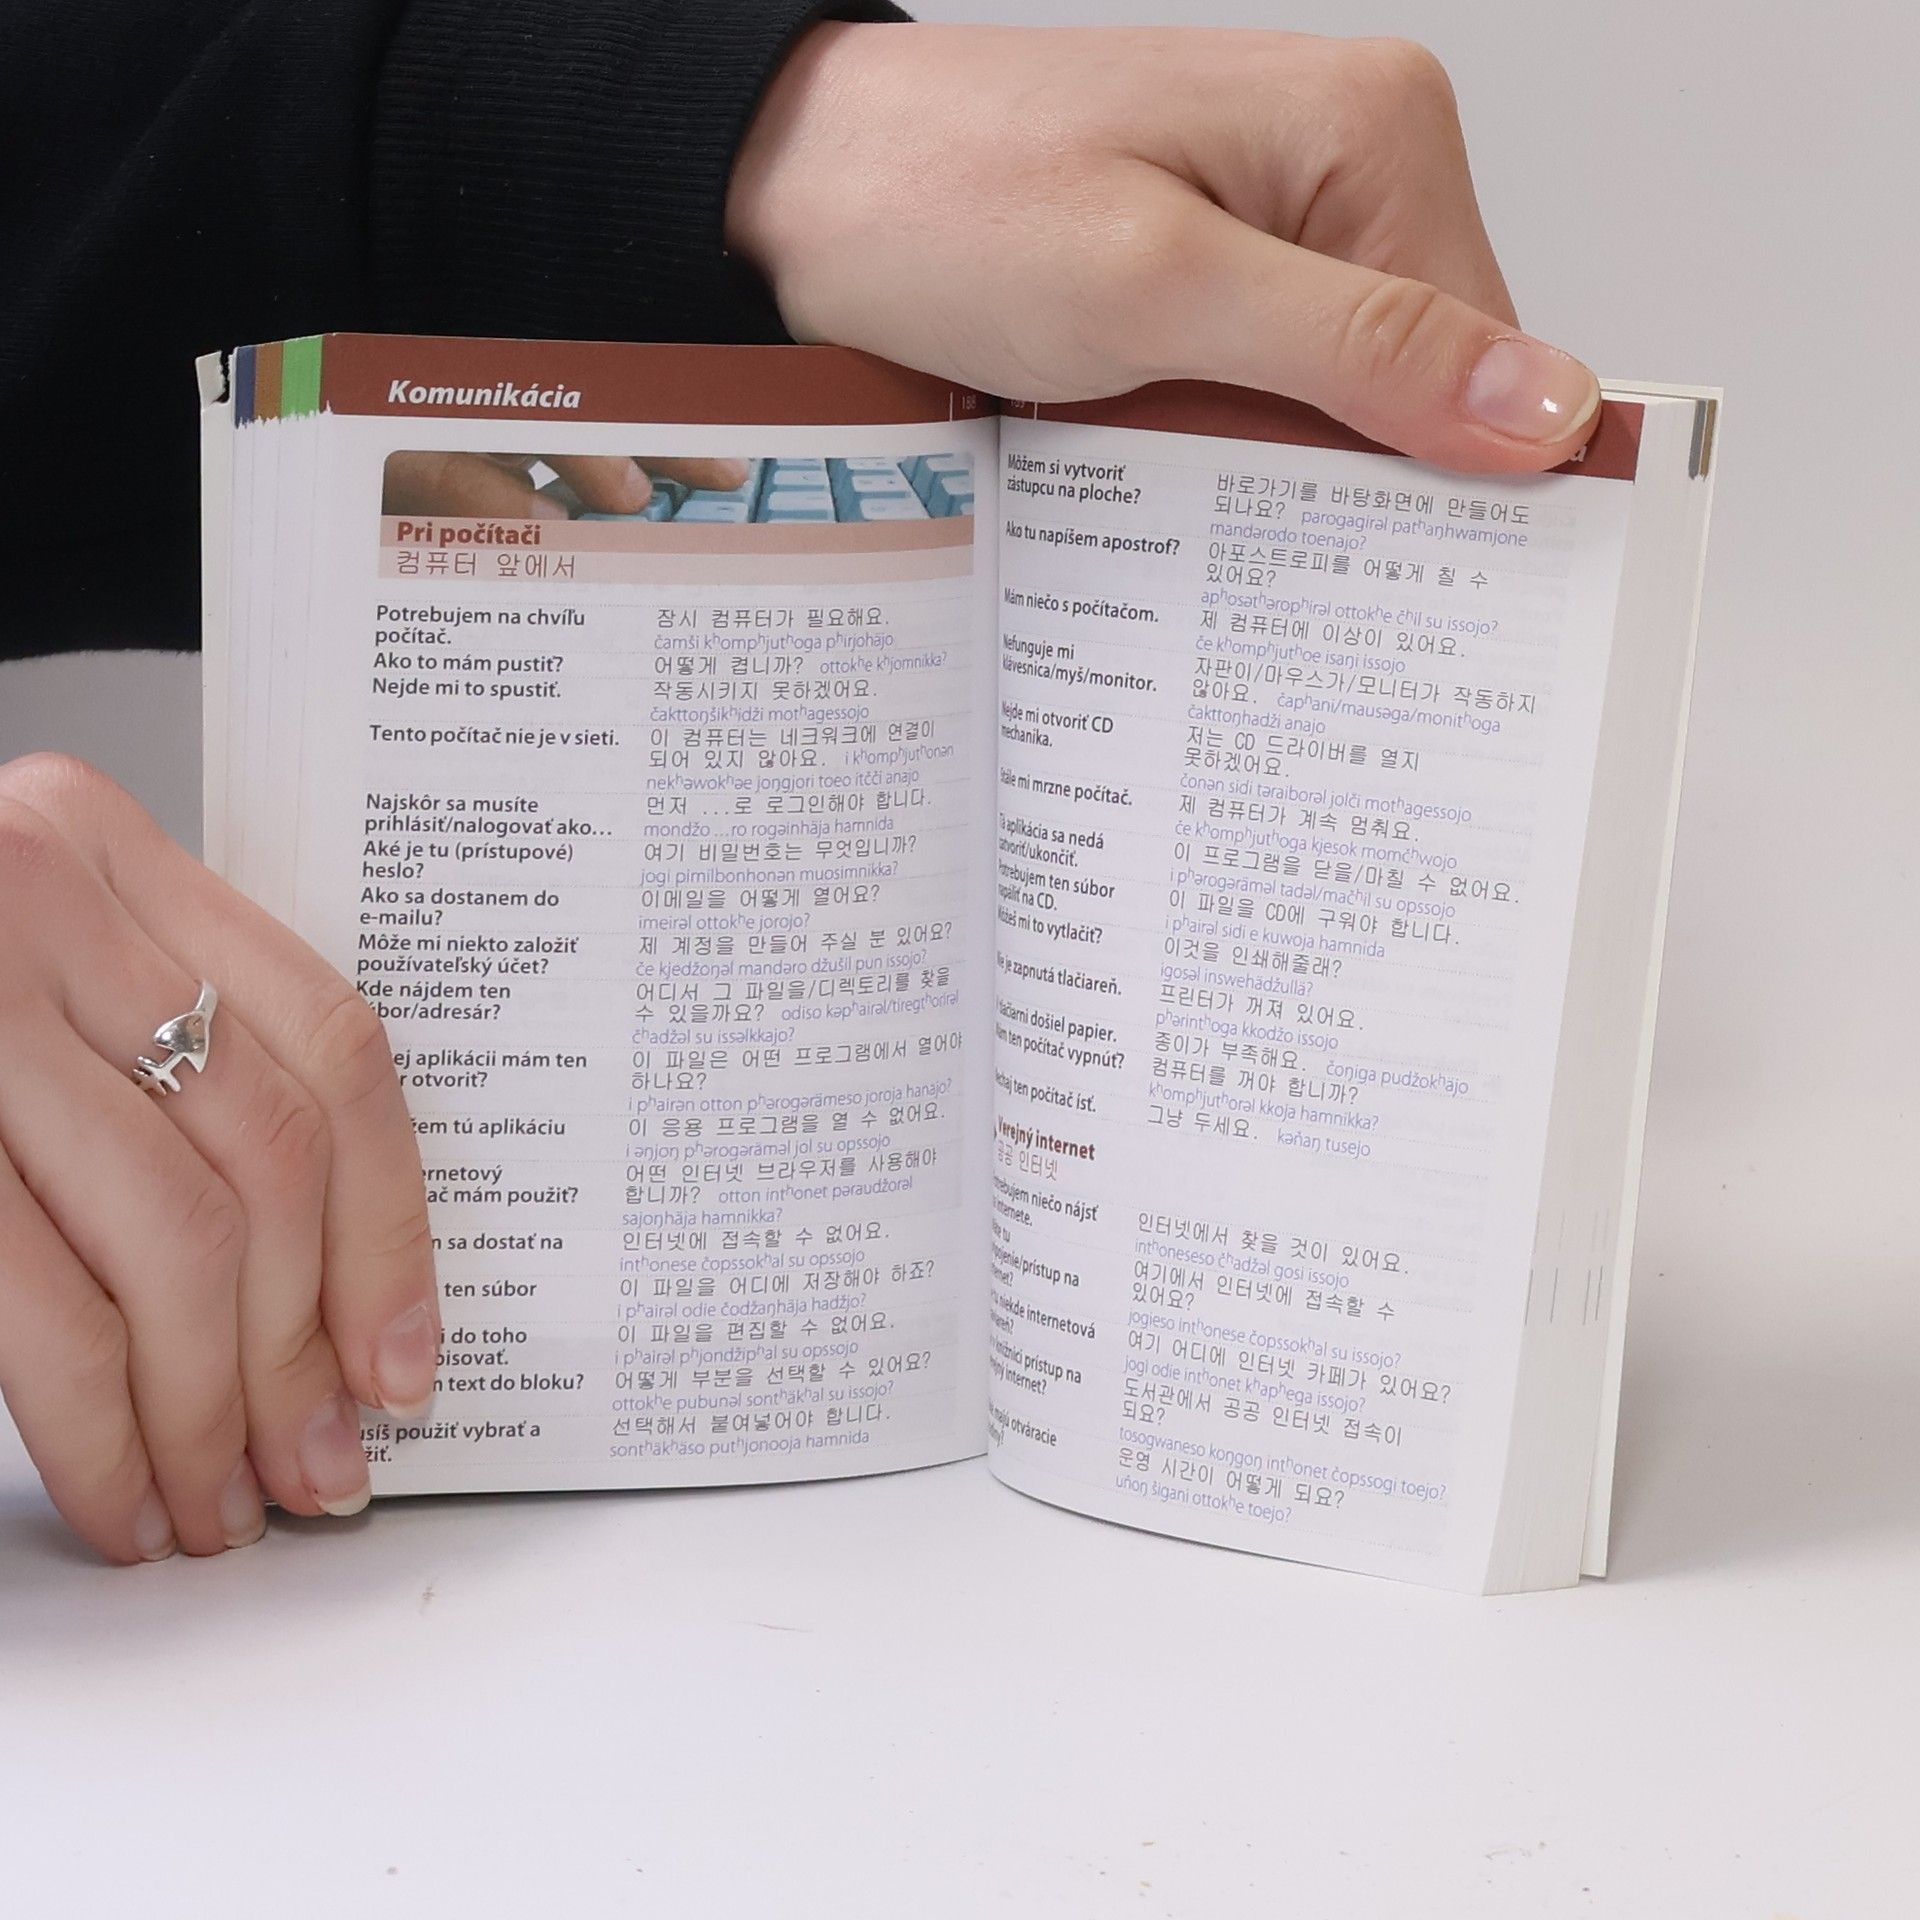 Komunikácia
188
Pri počítači
컴퓨터 앞에서
Potrebujem na chvíľu
počítač.
잠시 컴퓨터가 필요해요.
čamši kʰompʰjutʰoga pʰirjohäjo
Ako to mám pustiť?
어떻게 켭니까? ottokʰe kʰjomnikka?
Nejde mi to spustiť.
작동시키지 못하겠어요.
čakttoŋšikʰidži motʰagessojo
Tento počítač nie je v sieti.
이 컴퓨터는 네크워크에 연결이
되어 있지 않아요. i kʰompʰjutʰonən
nekʰəwokʰəe joŋgjori toeo itčči anajo
Najskôr sa musíte
prihlásiť/nalogovať ako...
먼저 ...로 로그인해야 합니다.
mondžo ...ro rogəinhäja hamnida
Aké je tu (prístupové)
heslo?
여기 비밀번호는 무엇입니까?
jogi pimilbonhonən muosimnikka?
Ako sa dostanem do
e-mailu?
이메일을 어떻게 열어요?
imeirəl ottokʰe jorojo?
Môže mi niekto založiť
používateľský účet?
제 계정을 만들어 주실 분 있어요?
če kjedžoŋəl mandəro džušil pun issojo?
Kde nájdem ten
bor/adresár?
어디서 그 파일을/디렉토리를 찾을
수 있을까요? odiso kəpʰairəl/tiregtʰorirəl
čʰadžəl su issəlkkajo?
ej aplikácii mám ten
r otvoriť?
이 파일은 어떤 프로그램에서 열어야
하나요?
i pʰairən otton pʰərogərämeso joroja hanajo?
žem tú aplikáciu
이 응용 프로그램을 열 수 없어요.
i əŋjoŋ pʰərogəräməl jol su opssojo
ernetový
ač mám použiť?
어떤 인터넷 브라우저를 사용해야
합니까? otton intʰonet pəraudžorəl
sajoŋhäja hamnikka?
m sa dostať na
인터넷에 접속할 수 없어요.
intʰonese čopssokʰal su opssojo
ten súbor
이 파일을 어디에 저장해야 하죠?
i pʰairəl odie čodžaŋhäja hadžjo?
i do toho
pisovať.
이 파일을 편집할 수 없어요.
i pʰairəl pʰjondžipʰal su opssojo
m text do bloku?
어떻게 부분을 선택할 수 있어요?
ottokʰe pubunəl sontʰäkʰal su issojo?
usíš použiť vybrať a
žiť.
선택해서 붙여넣어야 합니다.
sontʰäkʰäso putʰjonooja hamnida
Môžem si vytvoriť
zástupcu na ploche?
바로가기를 바탕화면에 만들어도
되나요? parogagirəl patʰaŋhwamjone
mandərodo toenajo?
Ako tu napíšem apostrof?
아포스트로피를 어떻게 칠 수
있어요?
apʰosətʰəropʰirəl ottokʰe čʰil su issojo?
Mám niečo s počítačom.
제 컴퓨터에 이상이 있어요.
če kʰompʰjutʰoe isaŋi issojo
Nefunguje mi
klávesnica/myš/monitor.
자판이/마우스가/모니터가 작동하지
않아요. čapʰani/mausəga/monitʰoga
čakttoŋhadži anajo
Nejde mi otvoriť CD
mechanika.
저는 CD 드라이버를 열지
못하겠어요.
čonən sidi təraiborəl jolči motʰagessojo
Stále mi mrzne počítač.
제 컴퓨터가 계속 멈춰요.
če kʰompʰjutʰoga kjesok momčʰwojo
Tá aplikácia sa nedá
zatvoriť/ukončiť.
이 프로그램을 닫을/마칠 수 없어요.
i pʰərogərämələl tadəl/mačʰil su opssojo
Potrebujem ten súbor
napáliť na CD.
이 파일을 CD에 구워야 합니다.
i pʰairəl sidi e kuwoja hamnida
Môžeš mi to vytlačiť?
이것을 인쇄해줄래?
igosəl inswehädžullä?
Nie je zapnutá tlačiareň.
프린터가 꺼져 있어요.
pʰərintʰoga kkodžo issojo
V tlačiarni došiel papier.
종이가 부족해요. čoŋiga pudžokʰäjo
Mám ten počítač vypnúť?
컴퓨터를 꺼야 합니까?
kʰompʰjutʰorəl kkoja hamnikka?
Nechaj ten počítač ísť.
그냥 두세요. kəňaŋ tusejo
Verejný internet
공공 인터넷
Potrebujem niečo nájsť
na internete.
인터넷에서 찾을 것이 있어요.
intʰoneseso čʰadžəl gosi issojo
tu
pojenie/prístup na
ernet?
여기에서 인터넷에 접속할 수
있어요?
jogieso intʰonese čopssokʰal su issojo?
tu niekde internetová
여기 어디에 인터넷 카페가 있어요?
jogi odie intʰonet kʰapʰega issojo?
knižnici prístup na
verejný internet?
도서관에서 공공 인터넷 접속이
되요?
tosogwaneso koŋgoŋ intʰonet čopssogi toejo?
majú otváracie
운영 시간이 어떻게 되요?
uňoŋ šigani ottokʰe toejo?